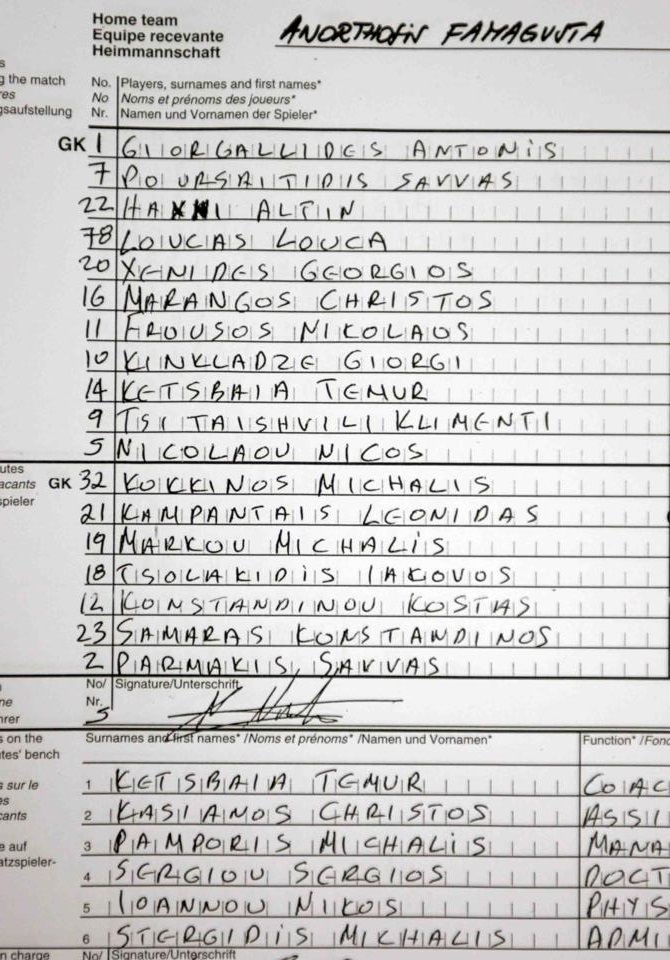 Home team
Equipe recevante
Heimmannschaft
ANORTHOSIS FAMAGUSTA
g the match
No. Players, surnames and first names*
No Noms et prénoms des joueurs*
gsaufstellung Nr. Namen und Vornamen der Spieler*
GK 1 GIORGALLIDES ANTONIS
7 POURSAITIDIS SAVVAS
22 ALTIN
78 LOUCAS LOUCA
20 XENIDES GEORGIOS
16 MARANGOS CHRISTOS
11 FROUSOS NIKOLAOS
10 KINKLADZE GIORGI
14 KETSBAIA TEMUR
9 TSITAISHVILI KLIMENTI
5 NICOLAOU NICOS
utes
acants GK 32 KOKKINOS MICHALIS
spieler
21 KAMPANTAIS LEONIDAS
19 MARKOU MICHALIS
18 TSOLAKIDIS IAKOVOS
12 KONSTANDINOU KOSTAS
23 SAMARAS KONSTANDINOS
2 PARMAKIS SAVVAS
No/ Signature/Unterschrift
ne Nr.
hrer 5
s on the Surnames and first names* /Noms et prénoms* /Namen und Vornamen* Function* /Fonc
utes' bench
1 KETSBAIA TEMUR COAC
s sur le
es 2 KASIANOS CHRISTOS ASSI
cants
3 PAMPORIS MICHALIS MANA
e auf
atzspieler- 4 SERGIOU SERGIOS DOCT
5 IOANNOU NIKOS PHYS
6 STERGIDIS MICHALIS ADMI
n charge No/ Signature/Unterschrift